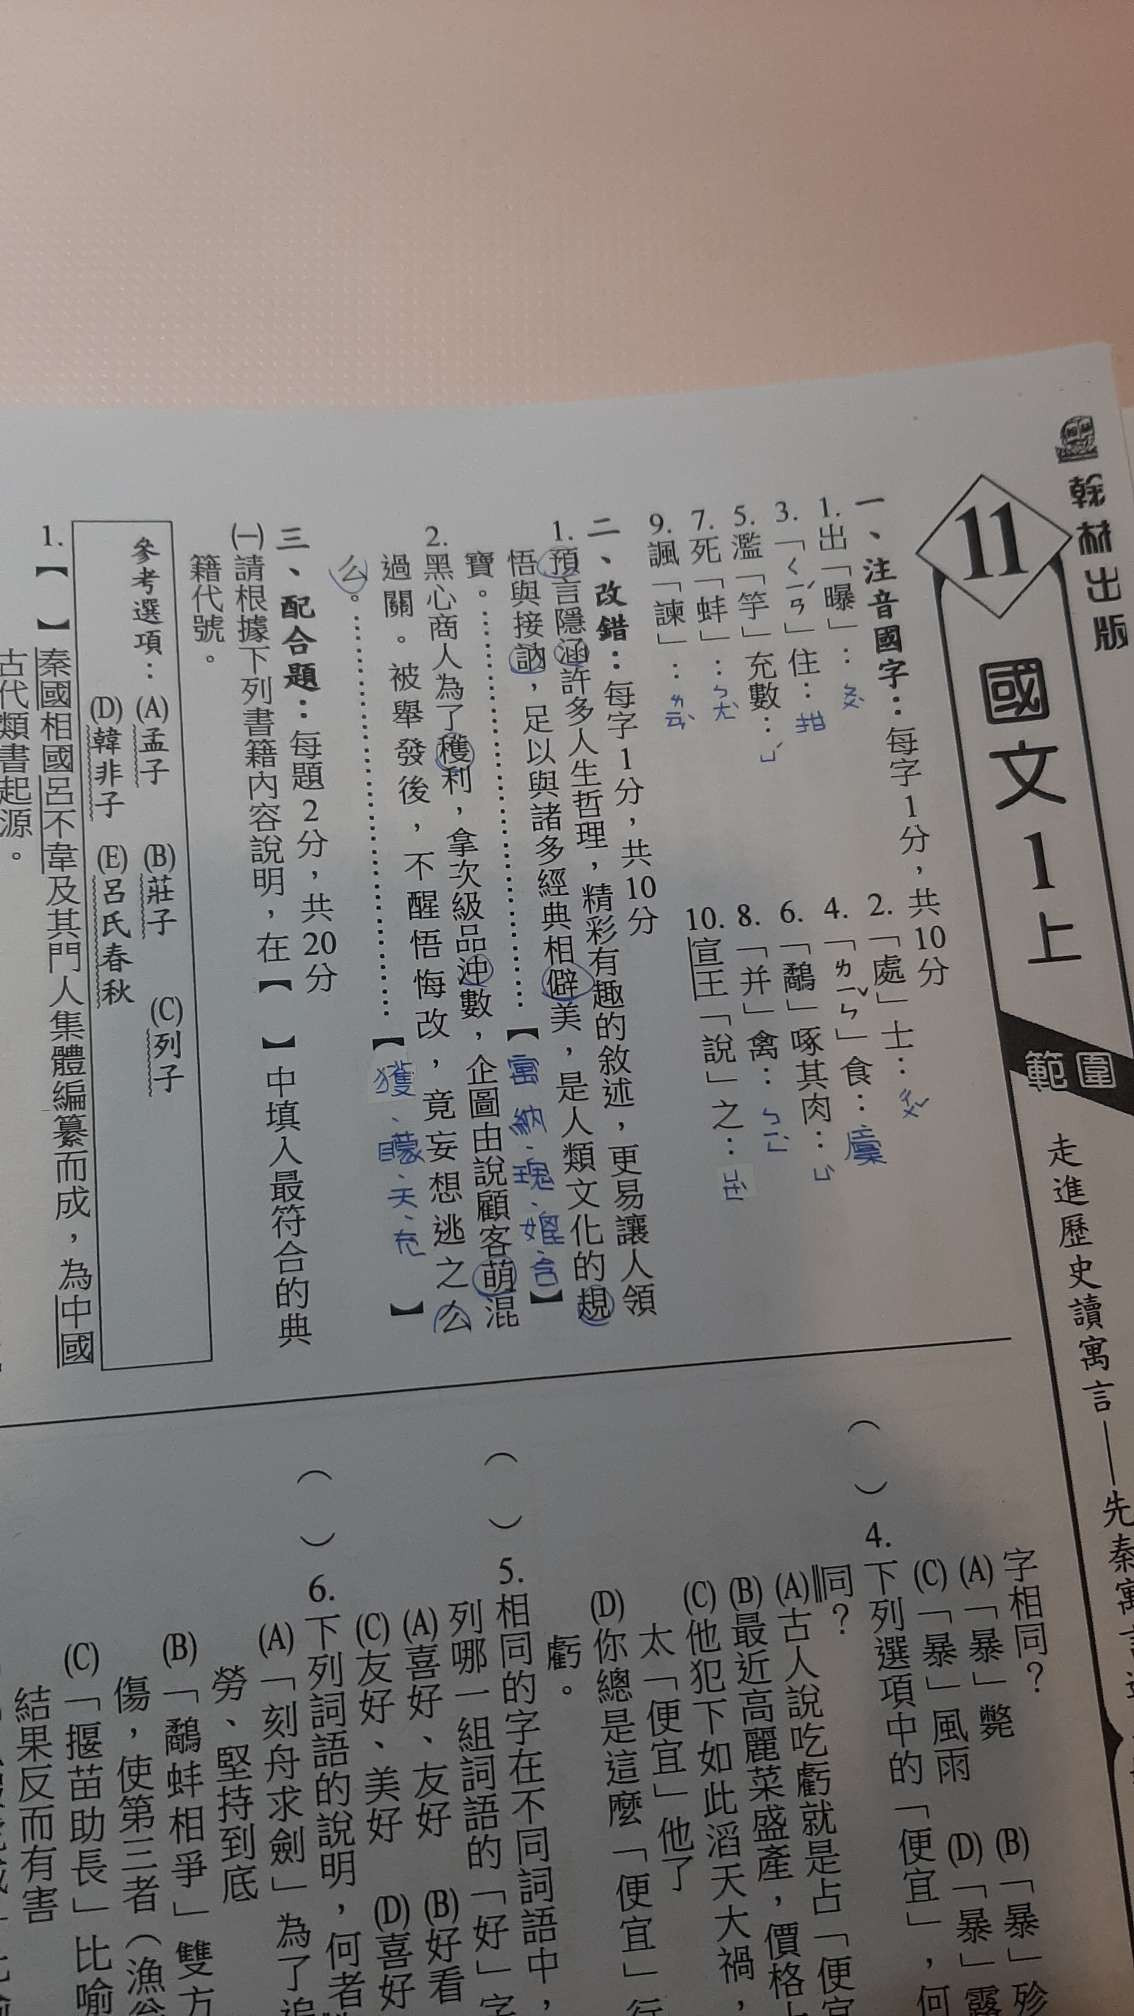 翰林出版
11
國文1上
範圍
走進歷史讀寓言——先秦寓言
一、注音國字：每字1分，共10分
1.出「曝」：ㄆㄨˋ
2.「處」士：ㄔㄨˇ
3.「ㄑㄧㄢˊ」住：拑
4.「ㄌㄧㄣˇ」食：廩
5.濫「竽」充數：ㄩˊ
6.「鷸」啄其肉：ㄩˋ
7.死「蚌」：ㄅㄤˋ
8.「并」禽：ㄅㄧㄥˋ
9.諷「諫」：
10.宣王「說」之：ㄩㄝˋ
二、改錯：每字1分，共10分
1.預言隱涵許多人生哲理，精彩有趣的敘述，更易讓人領
悟與接訥，足以與諸多經典相僻美，是人類文化的規
寶。……………………【寓、納、瑰、媲、含】
2.黑心商人為了穫利，拿次級品沖數，企圖由說顧客萌混
過關。被舉發後，不醒悟悔改，竟妄想逃之么
么。……………………【獲、矇、夭、充】
三、配合題：每題2分，共20分
㈠請根據下列書籍內容說明，在【　】中填入最符合的典
籍代號。
參考選項：(A)孟子 (B)莊子 (C)列子
(D)韓非子 (E)呂氏春秋
1.【　】秦國相國呂不韋及其門人集體編纂而成，為中國
古代類書起源。
字相同？
(A)「暴」斃 (B)「暴」殄
(C)「暴」風雨 (D)「暴」露
（　）4.下列選項中的「便宜」，何
同？
(A)古人說吃虧就是占「便宜
(B)最近高麗菜盛產，價格
(C)他犯下如此滔天大禍，
太「便宜」他了
(D)你總是這麼「便宜」行
虧。
（　）5.相同的字在不同詞語中，
列哪一組詞語的「好」字
(A)喜好、友好 (B)好看
(C)友好、美好 (D)喜好
（　）6.下列詞語的說明，何者
(A)「刻舟求劍」為了追
勞、堅持到底
(B)「鷸蚌相爭」雙方
傷，使第三者（漁翁
(C)「揠苗助長」比喻
結果反而有害